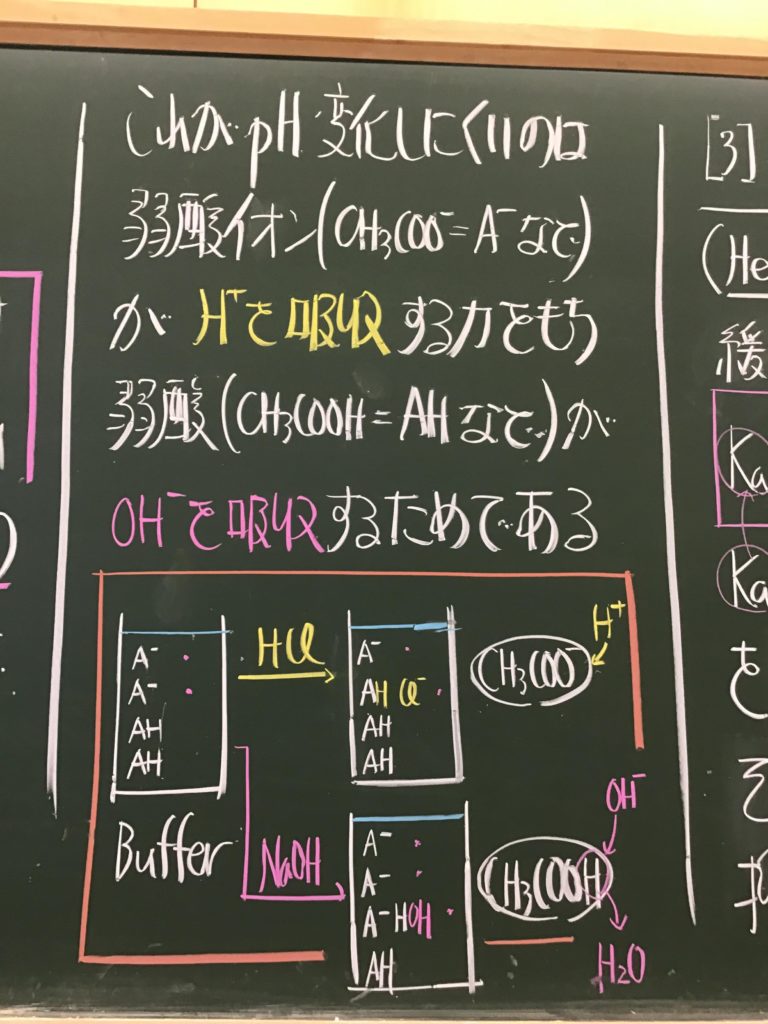 これが pH 変化しにくいのは
弱酸イオン(CH₃COO⁻=A⁻など)
が H⁺を吸収する力をもち
弱酸(CH₃COOH=AHなど)が
OH⁻を吸収するためである
A⁻
A⁻
AH
AH
Buffer
HCl
A⁻
AH Cl⁻
AH
AH
CH₃COO⁻
H⁺
NaOH
A⁻
A⁻
A⁻ HOH
AH
CH₃COOH
OH⁻
H₂O
[3]
(He
緩
Ka
Ka
を
そ